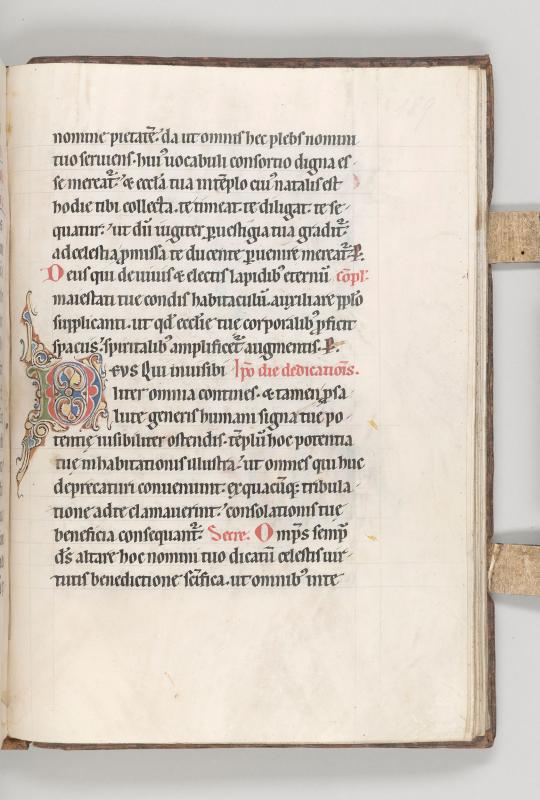 nomine pietatē· da ut omnis hec plebs nomini
tuo seruiens· huiꝰ uocabuli consortio digna es
se mereat᷑· & eccłia tua in tēplo cuiꝰ natalis est
hodie tibi collecta· te timeat· te diligat· te se
quatur· ut dū iugiter ꝑ uestigia tua gradit᷑·
ad celestia ꝓmissa te ducente ꝑuenire mereat᷑· P.
Deus qui de uiuis & electis lapidibꝰ eternū cōpł·
maiestati tue condis habitaculū· auxiliare pplo
supplicanti· ut qd̄ eccłie tue corporalibꝰ ꝓficit
spacus· spiritalibꝰ amplificet᷑ augmentis· P.
DEVS Qui inuisibi Ipō die dedicationis.
liter omnia contines· & tamen ꝓ sa
lute generis humani signa tue po
tentie uisibiliter ostendis· tēplū hoc potentia
tue inhabitationis illustra· ut omnes qui huc
deprecaturi conueniunt· ex quacūqꝫ tribula
tione ad te clamauerint· consolationis tue
beneficia consequant᷑· Secre· Omps̄ semp̄
ds̄ altare hoc nomini tuo dicatū celestis uir
tutis benedictione scīfica· ut omnibꝰ in te